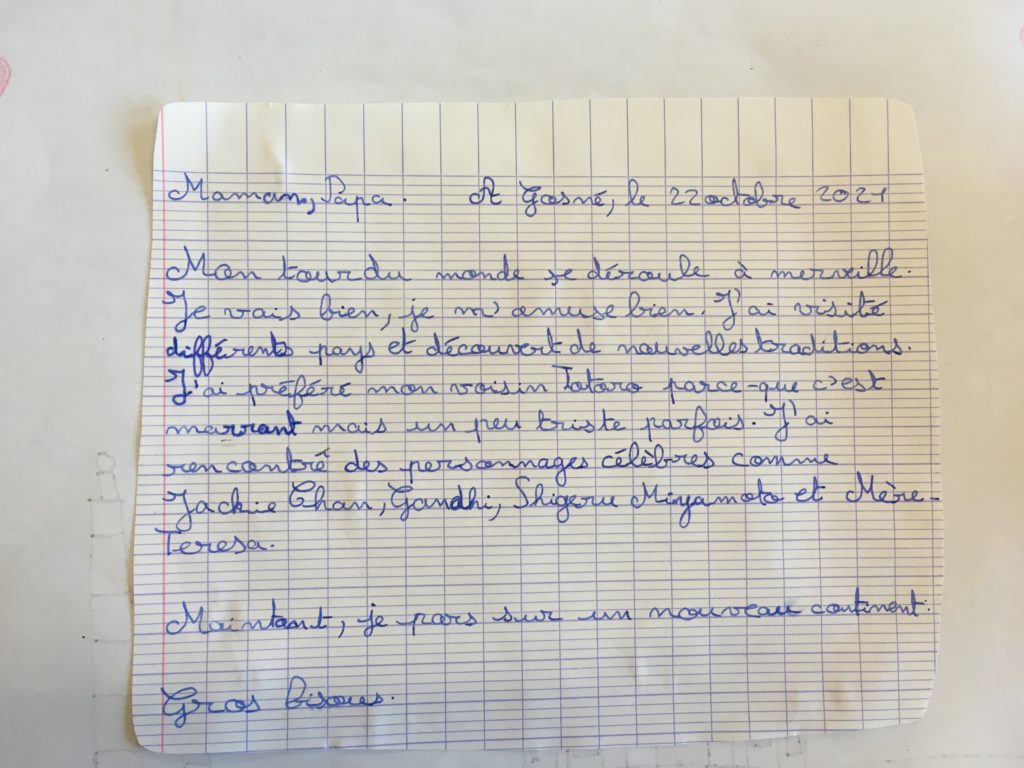 Maman, Papa. A Gosné, le 22 octobre 2021
Mon tour du monde se déroule à merveille.
Je vais bien, je m'amuse bien. J'ai visité
différents pays et découvert de nouvelles traditions.
J'ai préféré mon voisin Totoro parce-que c'est
marrant mais un peu triste parfois. J'ai
rencontré des personnages célèbres comme
Jackie Chan, Gandhi, Shigeru Miyamoto et Mère-
Teresa.
Maintant, je pars sur un nouveau continent.
Gros bisous.